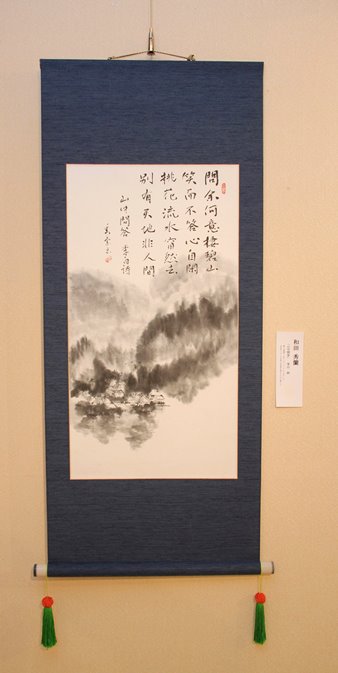 問余何意棲碧山
笑而不答心自閑
桃花流水窅然去
別有天地非人間
山中問答 李白詩
和田 秀蘭